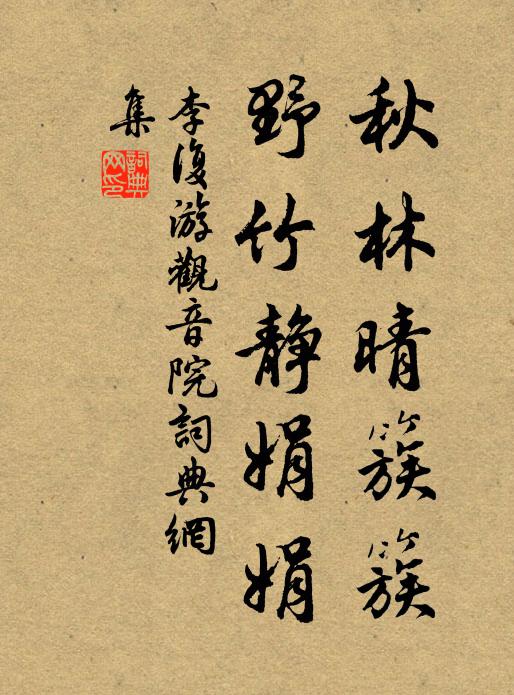 秋林晴簇簇
野竹静娟娟
李復游觀音院詞典網
集
詞典
网印